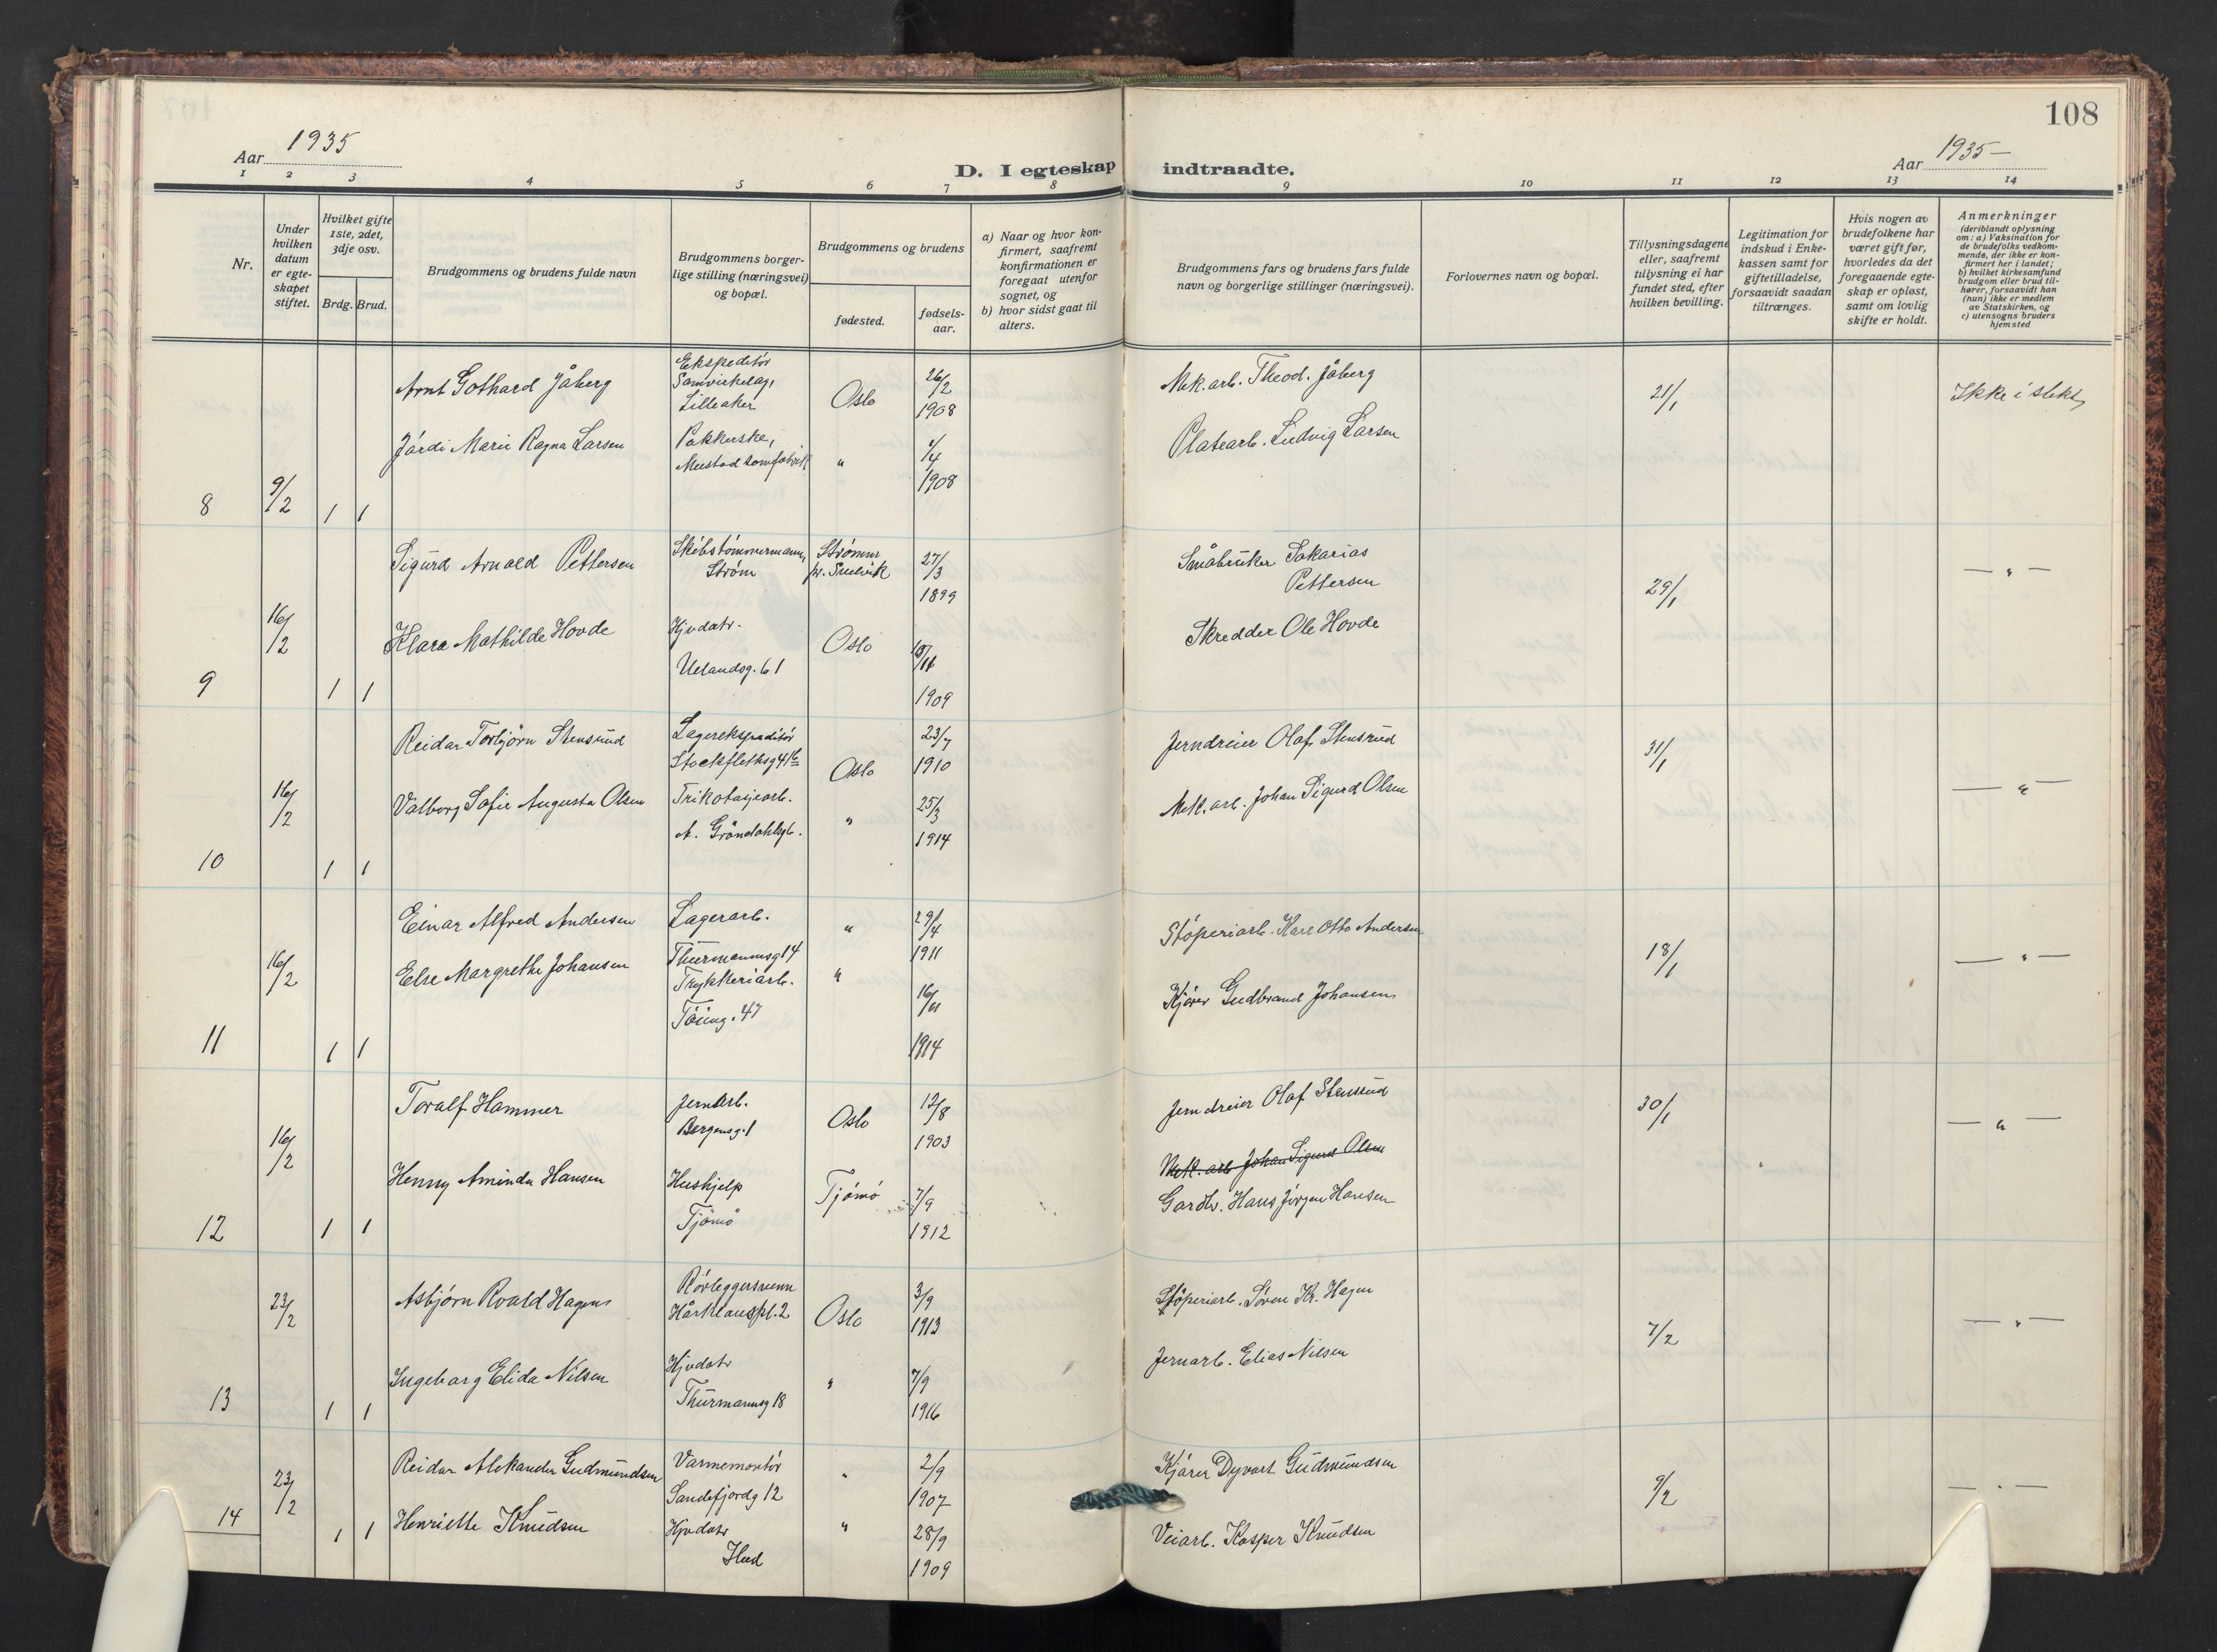 108
Aar 1935
D. I egteskap indtraadte.
Aar 1935 —
1 2 3 4 5 6 7 8 9 10 11 12 13 14
Nr.
Under hvilken datum er egteskapet stiftet.
Hvilket gifte 1ste, 2det, 3dje osv.
Brdg. Brud.
Brudgommens og brudens fulde navn
Brudgommens borgerlige stilling (næringsvei) og bopæl.
Brudgommens og brudens
fødested.
fødselsaar.
a) Naar og hvor konfirmert, saafremt konfirmationen er foregaat utenfor sognet, og
b) hvor sidst gaat til alters.
Brudgommens fars og brudens fars fulde navn og borgerlige stillinger (næringsvei).
Forlovernes navn og bopæl.
Tillysningsdagene eller, saafremt tillysning ei har fundet sted, efter hvilken bevilling.
Legitimation for indskud i Enkekassen samt for giftetilladelse, forsaavidt saadan tiltrænges.
Hvis nogen av brudefolkene har været gift før, hvorledes da det foregaaende egteskap er opløst, samt om lovlig skifte er holdt.
Anmerkninger
(deriblandt oplysning om: a) Vaksination for de brudefolks vedkommende, der ikke er konfirmert her i landet; b) hvilket kirkesamfund brudgom eller brud tilhører, forsaavidt han (hun) ikke er medlem av Statskirken, og c) utensogns bruders hjemsted
8 9/2 1 1
Arnt Gothard Jåberg
Ekspeditör
Samvirkelag,
Lilleaker
Oslo
26/2
1908
Mek.arb. Theod. Jåberg
21/1
Ikke i slekt,
Jårdi Marie Ragna Larsen
Pakkerske,
Mustad sømfabrik
"
1/4
1908
Platearb. Ludvig Larsen
9 16/2 1 1
Sigurd Arnold Pettersen
Skibstömmermann,
Ström
Strömm
pr. Svelvik
27/3
1899
Småbruker Sakarias
Pettersen
29/1
— " —
Klara Mathilde Hovde
Hjvdatr.
Uelandsg. 61
Oslo
1909
Skredder Ole Hovde
10 16/2 1 1
Reidar Torbjörn Stensrud
Lagerekspeditör
Stockflethsg 41 b
Oslo
23/7
1910
Jerndreier Olaf Stensrud
31/1
— " —
Valborg Sofie Augusta Olsen
Trikotasjearb.
A. Gröndahlsg.
"
25/3
1914
Mek. arb. Johan Sigurd Olsen
11 16/2 1 1
Einar Alfred Andersen
Lagerarb.
Thurmannsg 14
"
29/4
1911
Stöperiarb. Karl Otto Andersen
18/1
— " —
Else Margrethe Johansen
Trykkeriarb.
Töieng. 47
"
16/11
1914
Kjörer Gudbrand Johansen
12 16/2 1 1
Toralf Hammer
Jernarb.
Bergensg. 1
Oslo
12/8
1903
Jerndreier Olaf Stensrud
30/1
— " —
Mek. arb Johan Sigurd Olsen
Henny Aminda Hansen
Hushjelp
Tjömö
Tjömö
7/9
1912
Gardbr. Hans Jörgen Hansen
13 23/2 1 1
Asbjörn Roald Hagen
Rörleggersvenn
Hårklauspl. 2
Oslo
3/9
1913
Stöperiarb. Sören Kr. Hagen
7/2
— " —
Ingeborg Elida Nilsen
Hjvdatr
Thurmannsg 18
"
7/9
1916
Jernarb. Elias Nilsen
14 23/2 1 1
Reidar Aleksander Gudmundsen
Varmemontör
Sandefjordg 12
"
2/9
1907
Kjörer Dyvart Gudmundsen
9/2
— " —
Henriette Knudsen
Hjvdatr
"
28/9
1909
Veiarb. Kasper Knudsen